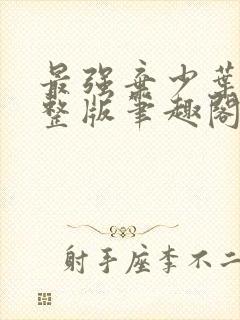 最强弃少葉
整版筆趣閣
射手座李不二